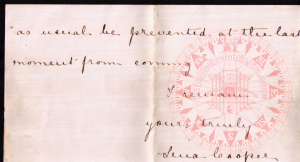 "as usual be prevented at the last
moment from coming
I remain
yours truly
Lena Cooper